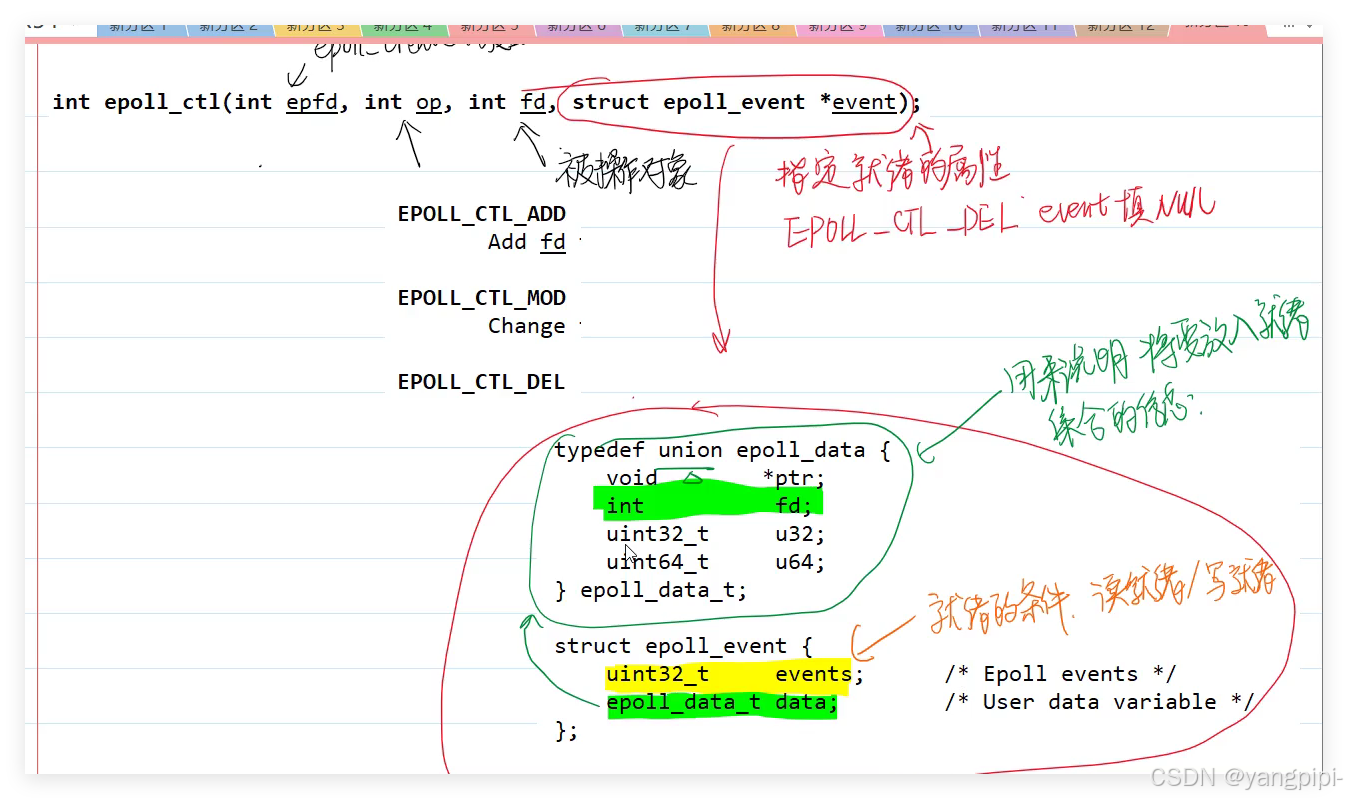 新分区 1 新分区 2 新分区 3 新分区 4 新分区 5 新分区 6 新分区 7 新分区 8 新分区 9 新分区 10 新分区 11 新分区 12
int epoll_ctl(int epfd, int op, int fd, struct epoll_event *event);
被操作对象
指定就绪的属性
EPOLL_CTL_DEL event填NULL
EPOLL_CTL_ADD
Add fd
EPOLL_CTL_MOD
Change
EPOLL_CTL_DEL
用来说明 将要放入就绪
集合的信息.
typedef union epoll_data {
void *ptr;
int fd;
uint32_t u32;
uint64_t u64;
} epoll_data_t;
就绪的条件. 读就绪/写就绪
struct epoll_event {
uint32_t events; /* Epoll events */
epoll_data_t data; /* User data variable */
};
CSDN @yangpipi-